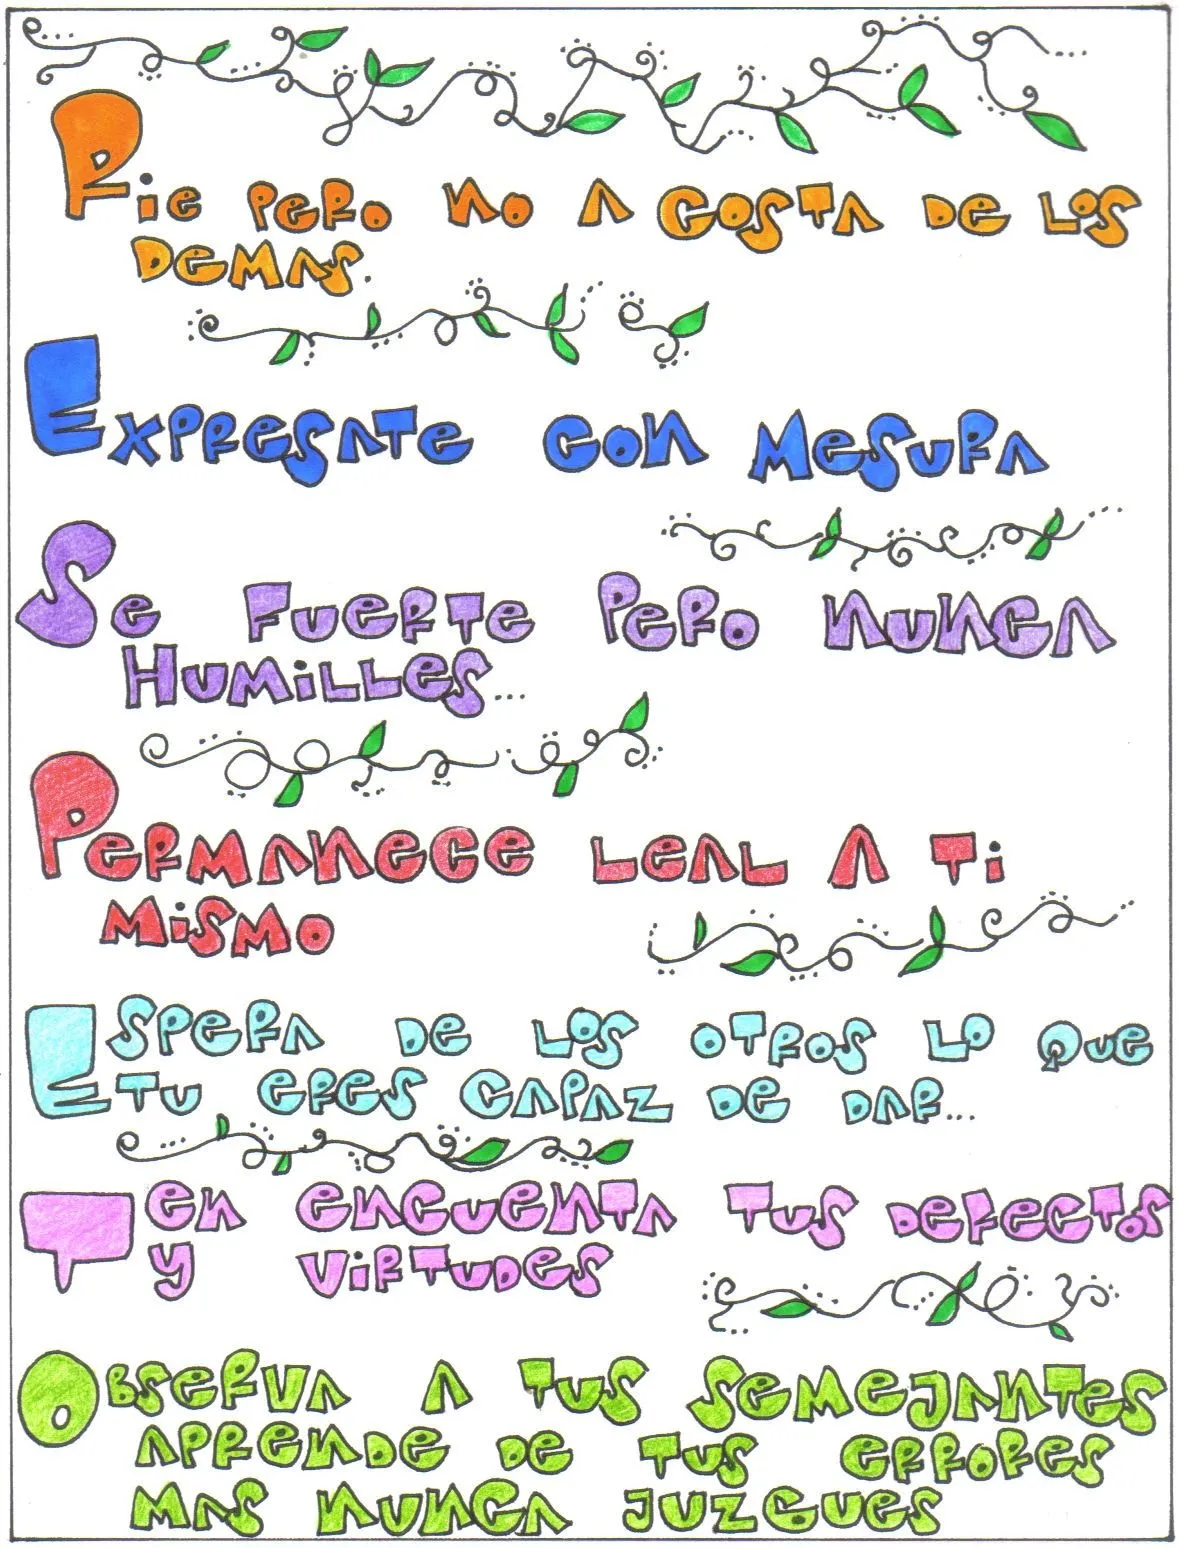 Rie pero no a costa de los
demas.
Expresate con mesura
Se fuerte pero nunca
humilles...
Permanece leal a ti
mismo
Espera de los otros lo que
tu eres capaz de dar...
Ten encuenta tus defectos
y virtudes
Observa a tus semejantes
aprende de tus errores
mas nunca juzgues